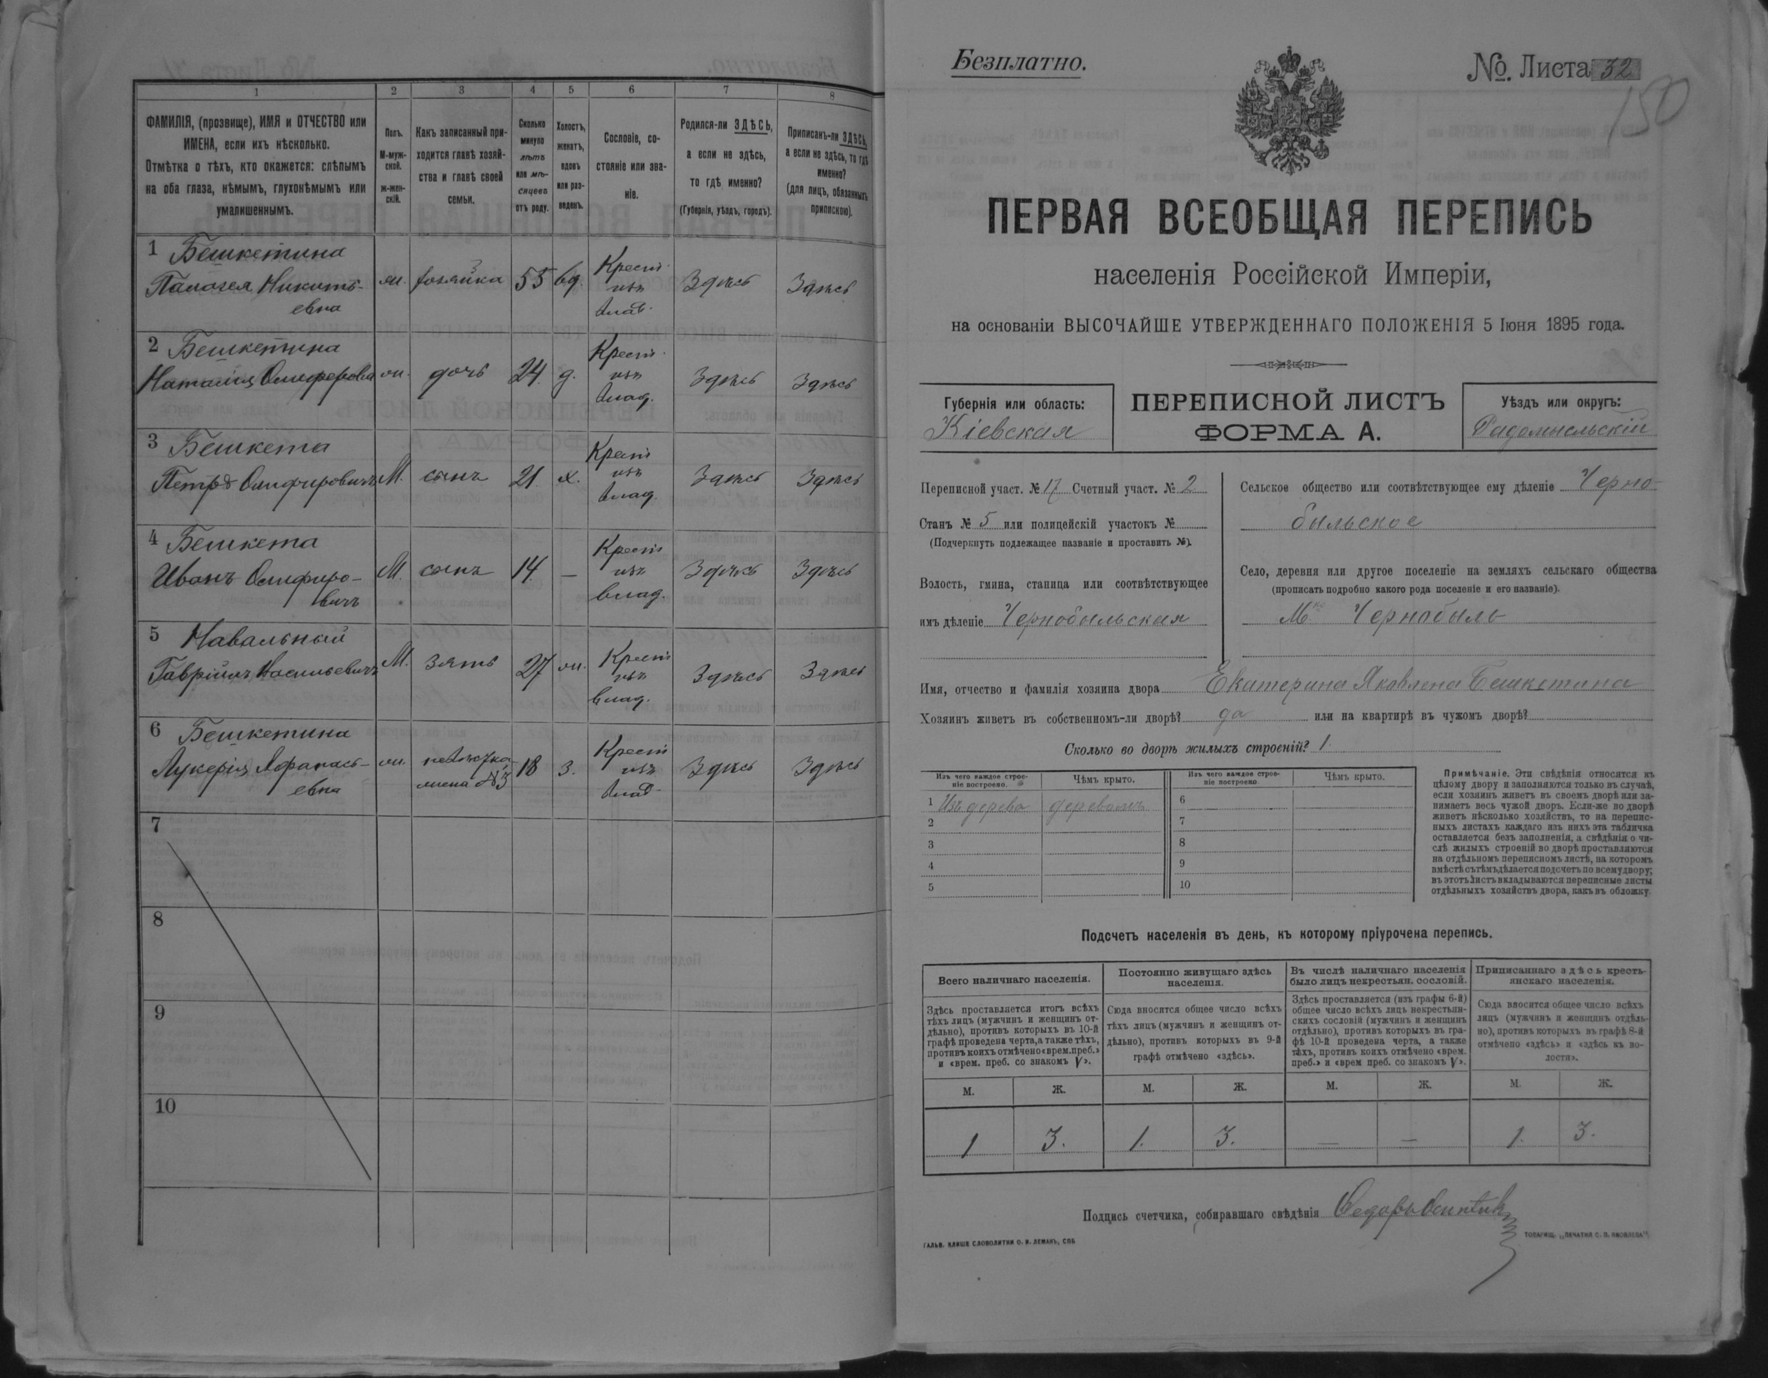 1 2 3 4 5 6 7 8
ФАМИЛІЯ, (прозвище), ИМЯ и ОТЧЕСТВО или
ИМЕНА, если ихъ нѣсколько.
Отмѣтка о тѣхъ, кто окажется: слѣпымъ
на оба глаза, нѣмымъ, глухонѣмымъ или
умалишеннымъ.
Полъ.
М-муж-
ской.
ж-жен-
скій.
Какъ записанный при-
ходится главѣ хозяй-
ства и главѣ своей
семьи.
Сколько
минуло
лѣтъ
или мѣ-
сяцевъ
отъ роду.
Холостъ,
женатъ,
вдовъ
или раз-
веденъ.
Сословіе, со-
стояніе или зва-
ніе.
Родился-ли ЗДѢСЬ,
а если не здѣсь,
то гдѣ именно?
(Губернія, уѣздъ, городъ).
Приписанъ-ли ЗДѢСЬ,
а если не здѣсь, то гдѣ
именно?
(для лицъ, обязанныхъ
припискою).
1 Бешкетина
Пелагея Никить-
евна
ж. хозяйка 55 вд. Крест. изъ влад. Здѣсь Здѣсь
2 Бешкетина
Наталія Олиферовна ж. дочь 24 д. Крест. изъ влад. Здѣсь Здѣсь
3 Бешкета
Петръ Олифировичъ М. сынъ 21 х. Крест. изъ влад. Здѣсь Здѣсь
4 Бешкета
Иванъ Олифиро-
вичъ
М. сынъ 14 — Крест. изъ влад. Здѣсь Здѣсь
5 Навальный
Гаврійлъ Васильевичъ М. зять 27 ж. Крест. изъ влад. Здѣсь Здѣсь
6 Бешкетина
Лукерія Афанась-
евна
ж. 18 з. Крест. изъ влад. Здѣсь Здѣсь
7
8
9
10
Безплатно.
№. Листа 32
150
ПЕРВАЯ ВСЕОБЩАЯ ПЕРЕПИСЬ
населенія Россійской Имперіи,
на основаніи ВЫСОЧАЙШЕ УТВЕРЖДЕННАГО ПОЛОЖЕНІЯ 5 Іюня 1895 года.
Губернія или область:
Кіевская
ПЕРЕПИСНОЙ ЛИСТЪ
ФОРМА А.
Уѣздъ или округъ:
Радомысльскій
Переписной участ. № 17 Счетный участ. № 2
Станъ № 5 или полицейскій участокъ №
(Подчеркнуть подлежащее названіе и проставить №).
Волость, гмина, станица или соотвѣтствующее
имъ дѣленіе Чернобыльская
Сельское общество или соотвѣтствующее ему дѣленіе Черно-
быльское
Село, деревня или другое поселеніе на земляхъ сельскаго общества
(прописать подробно какого рода поселеніе и его названіе).
М. Чернобыль
Имя, отчество и фамилія хозяина двора Екатерина Яковлевна Бешкетина
Хозяинъ живетъ въ собственномъ-ли дворѣ? да или на квартирѣ въ чужомъ дворѣ?
Сколько во дворѣ жилыхъ строеній? 1.
Изъ чего каждое строе-
ніе построено.
Чѣмъ крыто.
Изъ чего каждое строе-
ніе построено
Чѣмъ крыто.
1 Изъ дерева деревомъ 6
2 7
3 8
4 9
5 10
Примѣчаніе. Эти свѣдѣнія относятся къ
цѣлому двору и заполняются только въ случаѣ,
если хозяинъ живетъ въ своемъ дворѣ или за-
нимаетъ весь чужой дворъ. Если-же во дворѣ
живетъ нѣсколько хозяйствъ, то на перепис-
ныхъ листахъ каждаго изъ нихъ эта табличка
оставляется безъ заполненія, а свѣдѣнія о чи-
слѣ жилыхъ строеній во дворѣ проставляются
на отдѣльномъ переписномъ листѣ, на которомъ
вмѣстѣ съ тѣмъ дѣлается подсчетъ по всему двору;
въ этотъ листъ вкладываются переписные листы
отдѣльныхъ хозяйствъ двора, какъ въ обложку.
Подсчетъ населенія въ день, къ которому пріурочена перепись.
Всего наличнаго населенія.
Здѣсь проставляется итогъ всѣхъ
тѣхъ лицъ (мужчинъ и женщинъ от-
дѣльно), противъ которыхъ въ 10-й
графѣ проведена черта, а также тѣхъ,
противъ коихъ отмѣчено «врем. преб.»
и «врем. преб. со знакомъ V».
Постоянно живущаго здѣсь
населенія.
Сюда вносится общее число всѣхъ
тѣхъ лицъ (мужчинъ и женщинъ от-
дѣльно), противъ которыхъ въ 9-й
графѣ отмѣчено «здѣсь».
Въ числѣ наличнаго населенія
было лицъ некрестьян. сословій.
Здѣсь проставляется (изъ графы 6-й)
общее число всѣхъ лицъ некрестьян-
скихъ сословій (мужчинъ и женщинъ
отдѣльно), противъ которыхъ въ гра-
фѣ 10-й проведена черта, а также
тѣхъ, противъ коихъ отмѣчено «врем.
преб.» и «врем преб. со знакомъ V».
Приписаннаго здѣсь кресть-
янскаго населенія.
Сюда вносится общее число всѣхъ
лицъ (мужчинъ и женщинъ отдѣль-
но), противъ которыхъ въ графѣ 8-й
отмѣчено «здѣсь» и «здѣсь въ во-
лости».
М. Ж. М. Ж. М. Ж. М. Ж.
1 3. 1. 3. — — 1. 3.
Подпись счетчика, собиравшаго свѣдѣнія
ГАЛЬВ. КЛИШЕ СЛОВОЛИТНИ О. И. ЛЕМАНЪ, СПБ
ТОВАРИЩ. „ПЕЧАТНЯ С. П. ЯКОВЛЕВА“